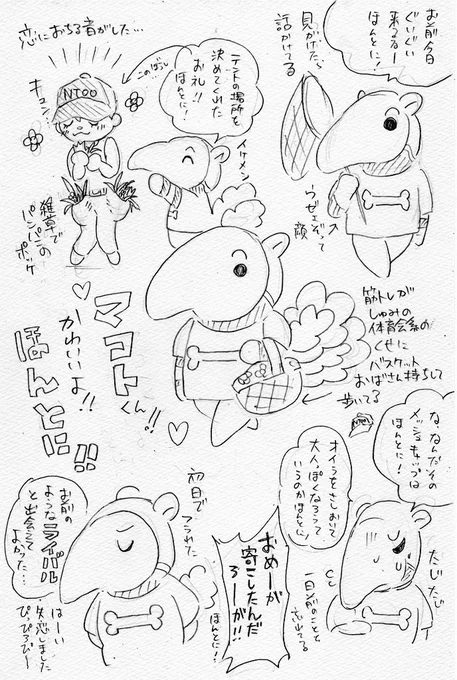 お前今日
ぐいぐい
来るなー
ほんとに!
見かけたら
話かけてる
ウゼェぞって
顔
恋におちる音がした…
キュン!
このばしょ
NTOO
テントの場所を
決めてくれた
お礼!!
ほんとに!
イケメン
雑草で
パンパンの
ポッケ
マコトくん!!
かわいいよ!!
ほんとに!!
筋トレが
しゅみの
体育会系の
くせに
バスケット
おばさん持ちして
歩いてる
な、なんだその
メッシュキャップは
ほんとに!
オイラをさしおいて
大人っぽくなろうって
いうのかほんとに!
たじたじ
一日前のことも
忘れてる
初日で
フラれた
おめーが
寄こしたんだ
ろーが!!
ほんとに!
お前の
ような ライバル
と出会えて
よかった…
はーい
失恋しました
ぴっぴろぴー